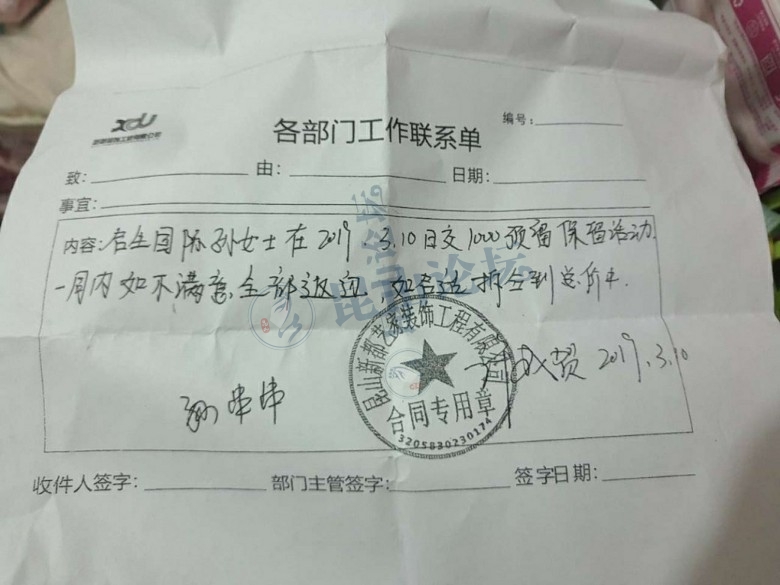 XDU
各部门工作联系单
编号:
致: 由: 日期:
事宜:
内容: 国际孙女士在2019 3.10日交1000预留保留活动
一月内如不满意全部返, 如合适折合到总价
昆山论坛
昆山新都艺家装饰工程有限公司
2019.3.10
合同专用章
3205830230174
收件人签字: 部门主管签字: 签字日期: